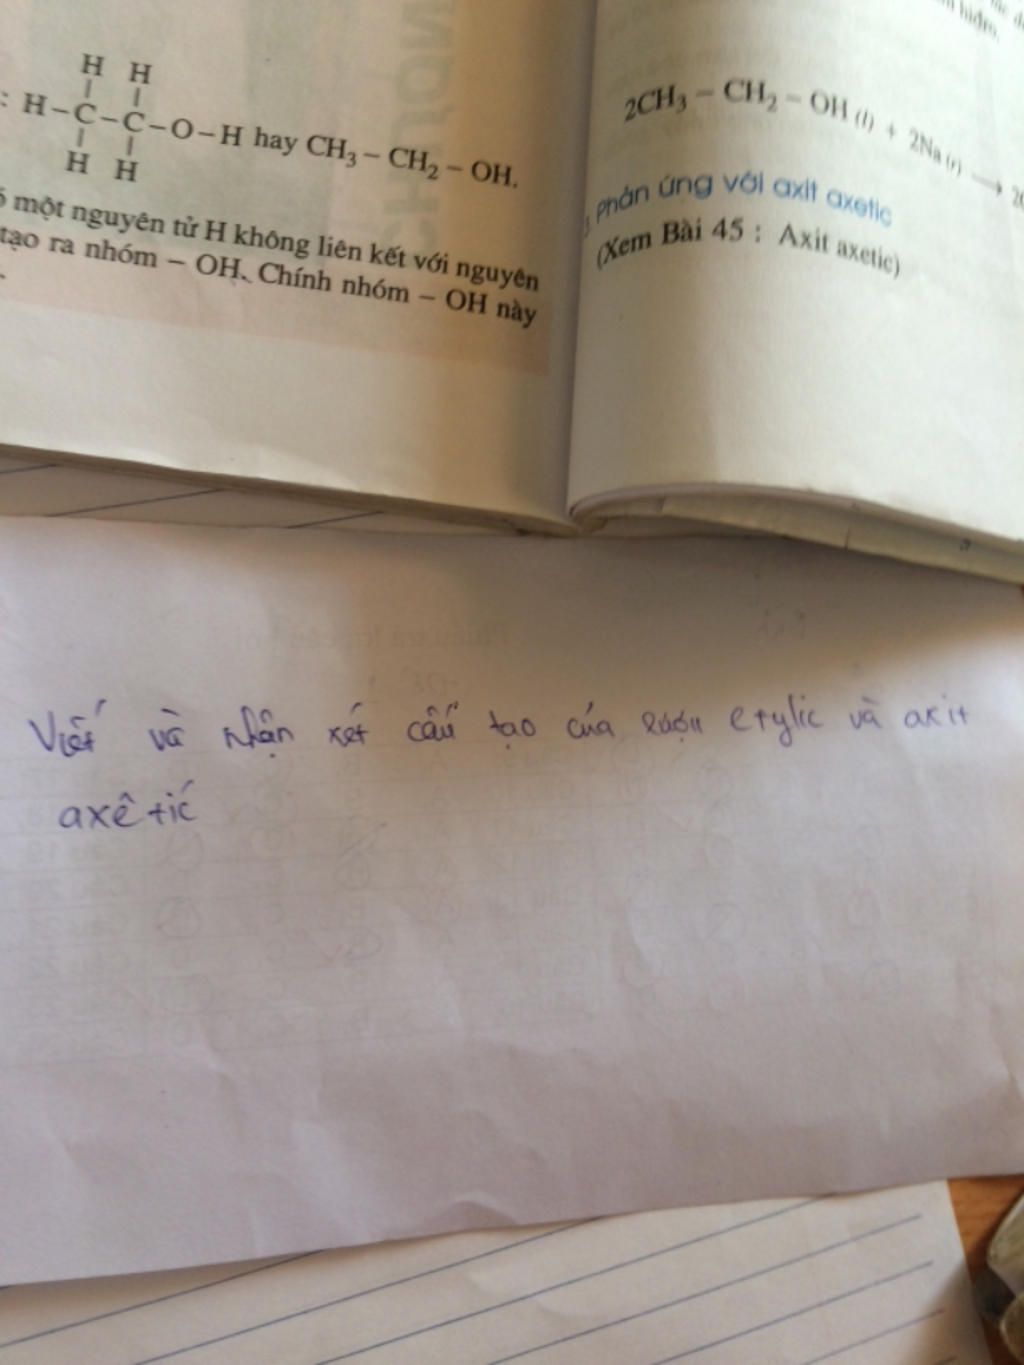 H H
: H – C – C – O – H hay CH₃ – CH₂ – OH.
H H
một nguyên tử H không liên kết với nguyên
tạo ra nhóm – OH. Chính nhóm – OH này
hiđro.
2CH₃ – CH₂ – OH (l) + 2Na (r) →
Phản ứng với axit axetic
(Xem Bài 45 : Axit axetic)
Viết và nhận xét cấu tạo của rượu etylic và axit
axêtic